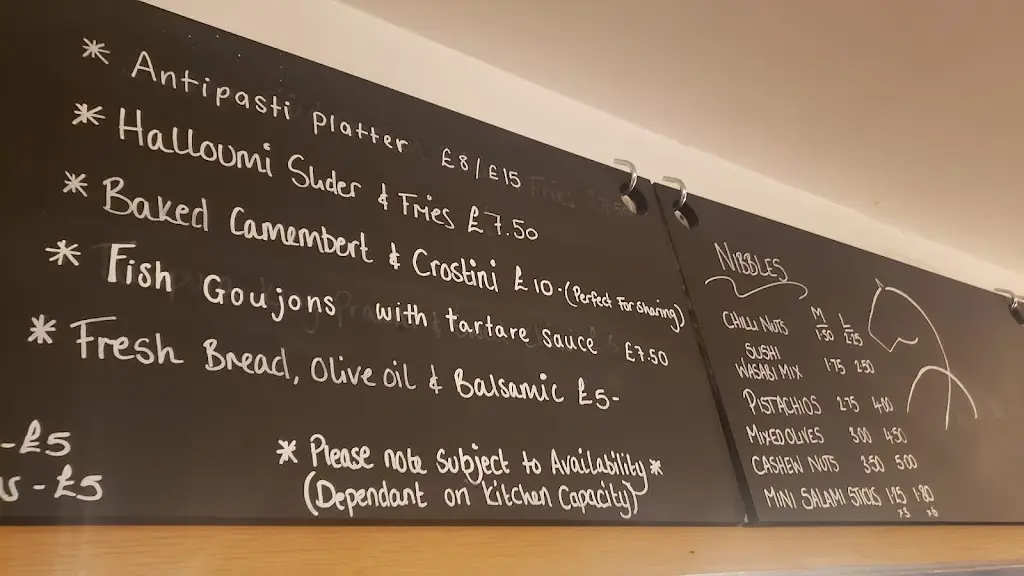 * Antipasti platter £8/£15
* Halloumi Slider & Fries £7.50
* Baked Camembert & Crostini £10-(Perfect For Sharing)
* Fish Goujons with tartare sauce £7.50
* Fresh Bread, Olive oil & Balsamic £5-
-£5
- £5
* Please note Subject to Availability *
(Dependant on Kitchen Capacity)
NIBBLES
M L
CHILLI NUTS 1.50 2.25
SUSHI
WASABI MIX 1.75 2.50
PISTACHIOS 2.75 4.00
MIXED OLIVES 3.00 4.50
CASHEW NUTS 3.50 5.00
MINI SALAMI STICKS 1.25 1.80
x3 x6